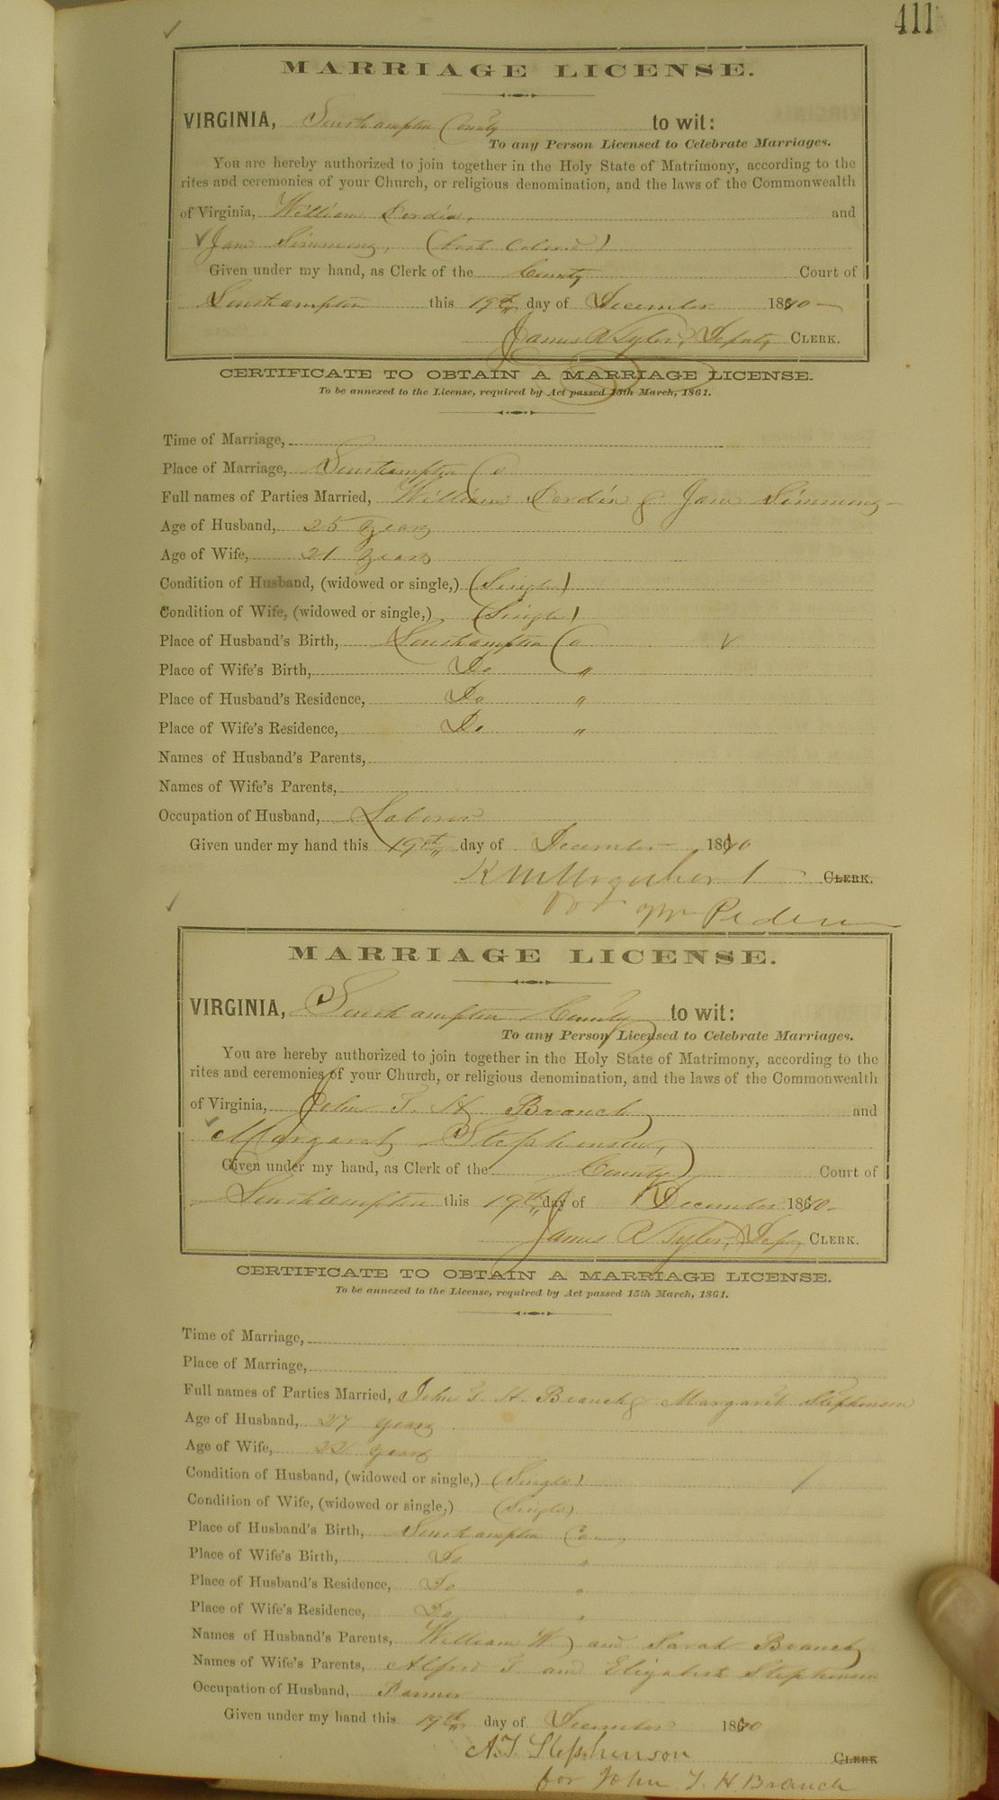 411
MARRIAGE LICENSE.
VIRGINIA, Southampton County to wit:
To any Person Licensed to Celebrate Marriages.
You are hereby authorized to join together in the Holy State of Matrimony, according to the
rites and ceremonies of your Church, or religious denomination, and the laws of the Commonwealth
of Virginia, William and
Jane Simmons, (both Colored)
Given under my hand, as Clerk of the County Court of
Southampton this 19th day of December 1870
James R Tyler, Deputy CLERK.
CERTIFICATE TO OBTAIN A MARRIAGE LICENSE.
To be annexed to the License, required by Act passed 15th March, 1861.
Time of Marriage,
Place of Marriage, Southampton Co
Full names of Parties Married, William & Jane Simmons
Age of Husband, 25 years
Age of Wife, 21 years
Condition of Husband, (widowed or single,) (Single)
Condition of Wife, (widowed or single,) (Single)
Place of Husband's Birth, Southampton Co
Place of Wife's Birth, Do "
Place of Husband's Residence, Do "
Place of Wife's Residence, Do "
Names of Husband's Parents,
Names of Wife's Parents,
Occupation of Husband, Laborer
Given under my hand this 19th day of December 1870
CLERK.
for Wm
MARRIAGE LICENSE.
VIRGINIA, Southampton County to wit:
To any Person Licensed to Celebrate Marriages.
You are hereby authorized to join together in the Holy State of Matrimony, according to the
rites and ceremonies of your Church, or religious denomination, and the laws of the Commonwealth
of Virginia, John T. H. Branch and
Margaret Stephenson,
Given under my hand, as Clerk of the County Court of
Southampton this 19th day of December 1870
James R Tyler, Dep, CLERK.
CERTIFICATE TO OBTAIN A MARRIAGE LICENSE.
To be annexed to the License, required by Act passed 15th March, 1861.
Time of Marriage,
Place of Marriage,
Full names of Parties Married, John T. H. Branch & Margaret Stephenson
Age of Husband, 27 years
Age of Wife, 22 years
Condition of Husband, (widowed or single,) (Single)
Condition of Wife, (widowed or single,) (Single)
Place of Husband's Birth, Southampton Co
Place of Wife's Birth, Do "
Place of Husband's Residence, Do "
Place of Wife's Residence, Do "
Names of Husband's Parents, William W. and Sarah Branch
Names of Wife's Parents, Alfred T. and Elizabeth Stephenson
Occupation of Husband, Farmer
Given under my hand this 19th day of December 1870
A. T. Stephenson CLERK
for John T. H. Branch